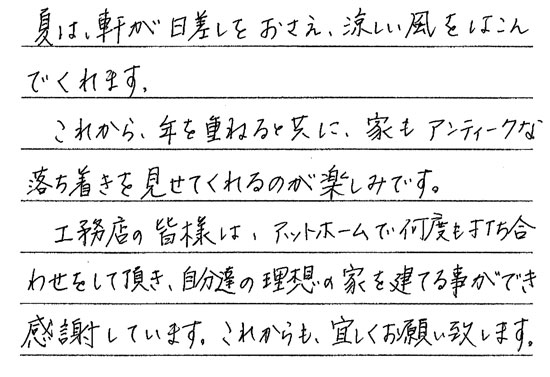 夏は、軒が日差しをおさえ、涼しい風をはこん
でくれます。
これから、年を重ねると共に、家もアンティークな
落ち着きを見せてくれるのが楽しみです。
工務店の皆様は、アットホームで何度も打ち合
わせをして頂き、自分達の理想の家を建てる事ができ
感謝しています。これからも、宜しくお願い致します。